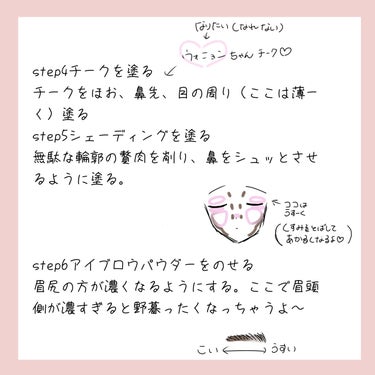 なりたい(なれない)
ウォニョンちゃんチーク♡
step4チークを塗る
チークをほお、鼻先、目の周り（ここは薄ー
く）塗る
step5シェーディングを塗る
無駄な輪郭の贅肉を削り、鼻をシュッとさせ
るように塗る。
ココは
うすーく
(くすみをとばして
あかるくなるよ♡)
step6アイブロウパウダーをのせる
眉尻の方が濃くなるようにする。ここで眉頭
側が濃すぎると野暮ったくなっちゃうよ〜
こい うすい